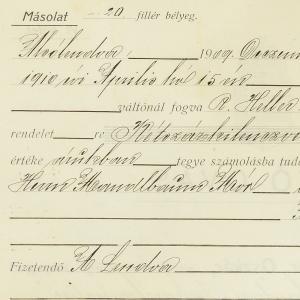 Másolat 20 fillér bélyeg.
Alsólendva, 1909 Deczem
1910 évi Április hó 15 én
váltónál fogva R. Heller
rendelet re Kétszázkilenczven
értéke árukban tegye számolásba tudó
Herrn Mandlbaum Mór
Fizetendő A. Lendva